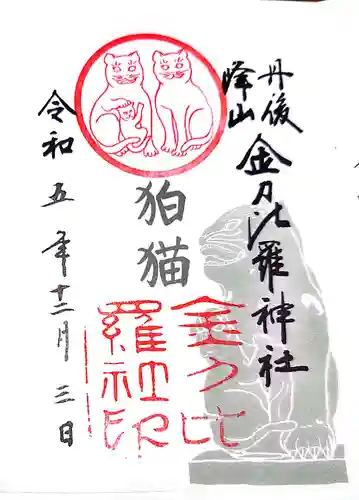 丹後
峰山
金刀比羅神社
狛猫
金刀比
羅社印
令和五年十二月三日